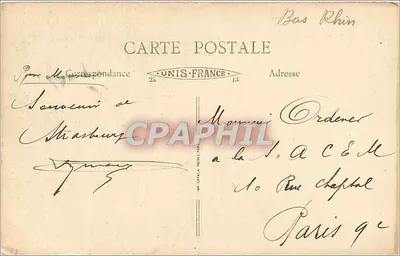 Bas Rhin
CARTE POSTALE
Correspondance
UNIS-FRANCE
25 13
Adresse
Souvenir de
Strasbourg
CPAPHIL
Monsieur Ordener
a la S. A C E M
10 Rue Chaptal
Paris 9e